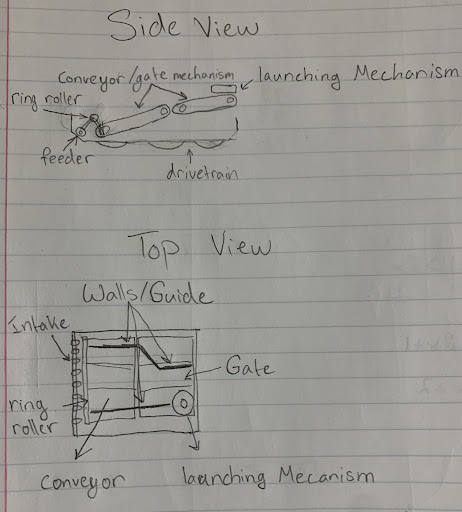 Side View
Conveyor/gate mechanism
launching Mechanism
ring roller
feeder
drivetrain
Top View
Walls/Guide
Intake
Gate
ring
roller
Conveyor
launching Mecanism